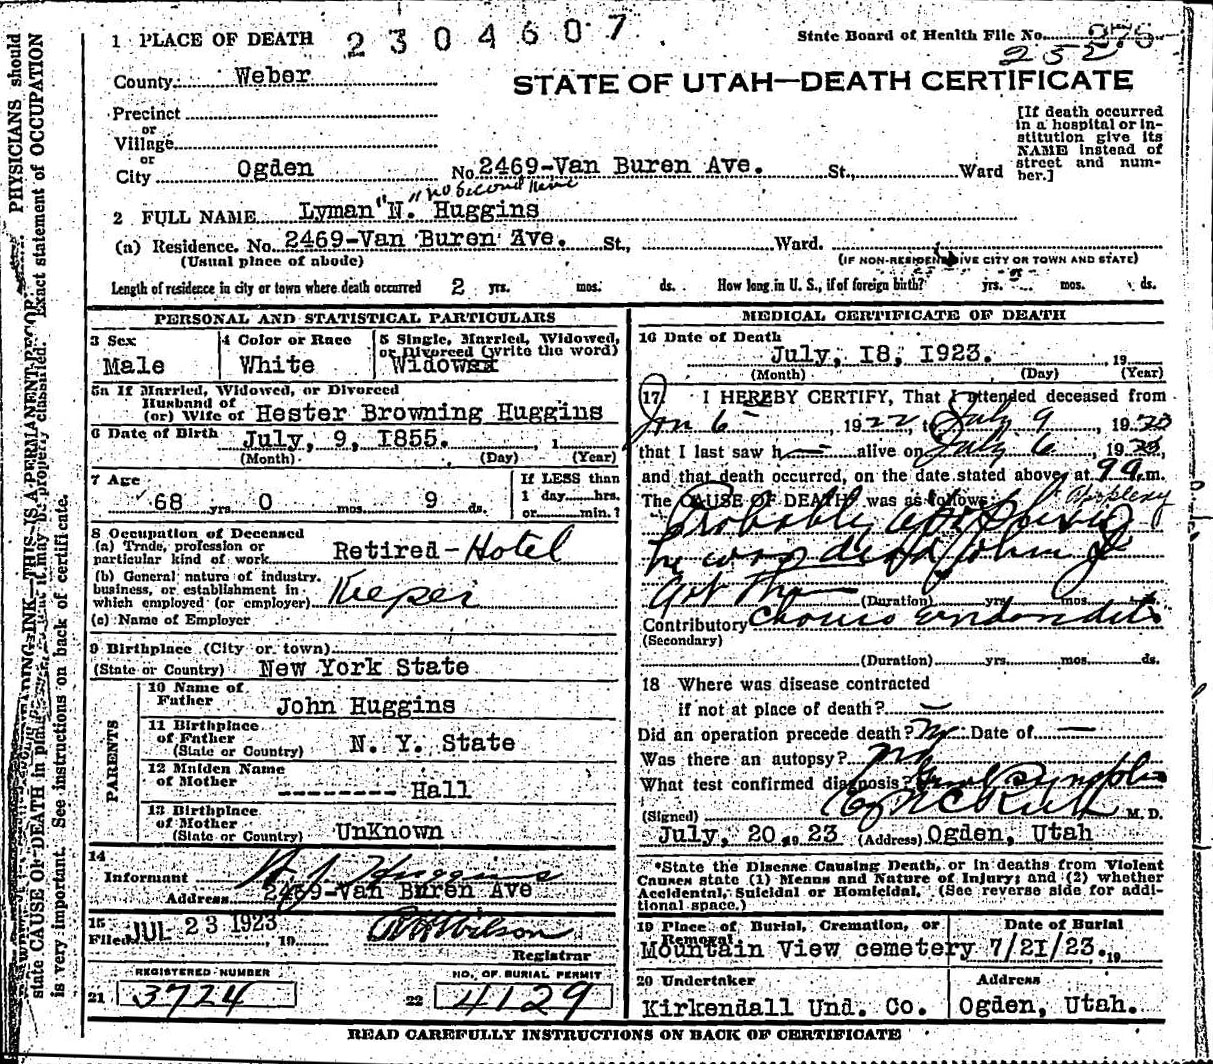 1 PLACE OF DEATH 2304607 State Board of Health File No. 276
252
County Weber
STATE OF UTAH—DEATH CERTIFICATE
Precinct
or
Village
or
City Ogden No. 2469-Van Buren Ave. St., Ward
[If death occurred
in a hospital or in-
stitution give its
NAME instead of
street and num-
ber.]
no second name
2 FULL NAME Lyman "N." Huggins
(a) Residence. No. 2469-Van Buren Ave. St., Ward.
(Usual place of abode) (IF NON-RESIDENT GIVE CITY OR TOWN AND STATE)
Length of residence in city or town where death occurred 2 yrs. mos. ds. How long in U. S., if of foreign birth? yrs. mos. ds.
PERSONAL AND STATISTICAL PARTICULARS
3 Sex Male
4 Color or Race White
5 Single, Married, Widowed,
or Divorced (write the word)
Widow
5a If Married, Widowed, or Divorced
Husband of
(or) Wife of Hester Browning Huggins
6 Date of Birth July, 9, 1855. , 1
(Month) (Day) (Year)
7 Age
68 yrs. 0 mos. 9 ds.
If LESS than
1 day hrs.
or min.?
8 Occupation of Deceased
(a) Trade, profession or
particular kind of work Retired-Hotel
(b) General nature of industry,
business, or establishment in
which employed (or employer) Keeper
(c) Name of Employer
9 Birthplace (City or town)
(State or Country) New York State
PARENTS
10 Name of
Father John Huggins
11 Birthplace
of Father
(State or Country) N. Y. State
12 Maiden Name
of Mother -------- Hall
13 Birthplace
of Mother
(State or Country) UnKnown
14
Informant H. J. Huggins
Address 2469-Van Buren Ave
15
Filed JUL 23 1923, 19 Wilson
Registrar
REGISTERED NUMBER NO. OF BURIAL PERMIT
21 3724 22 4129
MEDICAL CERTIFICATE OF DEATH
16 Date of Death
July, 18, 1923. , 19
(Month) (Day) (Year)
17 I HEREBY CERTIFY, That I attended deceased from
Jan 6 , 1922, to July 9 , 1923
that I last saw h alive on July 6 , 1923,
and that death occurred, on the date stated above, at 9 a.m.
The CAUSE OF DEATH* was as follows: Apoplexy
Probably
he was dead when I
got there
(Duration) yrs. mos. ds.
Contributory
(Secondary)
(Duration) yrs. mos. ds.
18 Where was disease contracted
if not at place of death? —
Did an operation precede death? No Date of —
Was there an autopsy? No
What test confirmed diagnosis?
(Signed) M. D.
July, 20, 19 23 (Address) Ogden, Utah
*State the Disease Causing Death, or in deaths from Violent
Causes state (1) Means and Nature of Injury; and (2) whether
Accidental, Suicidal or Homicidal. (See reverse side for addi-
tional space.)
19 Place of Burial, Cremation, or
Removal
Mountain View cemetery
Date of Burial
7/21/23. 19
20 Undertaker
Kirkendall Und. Co.
Address
Ogden, Utah.
READ CAREFULLY INSTRUCTIONS ON BACK OF CERTIFICATE
PHYSICIANS should
Exact statement of OCCUPATION
state CAUSE OF DEATH in
is very important. See instructions on back of certificate.